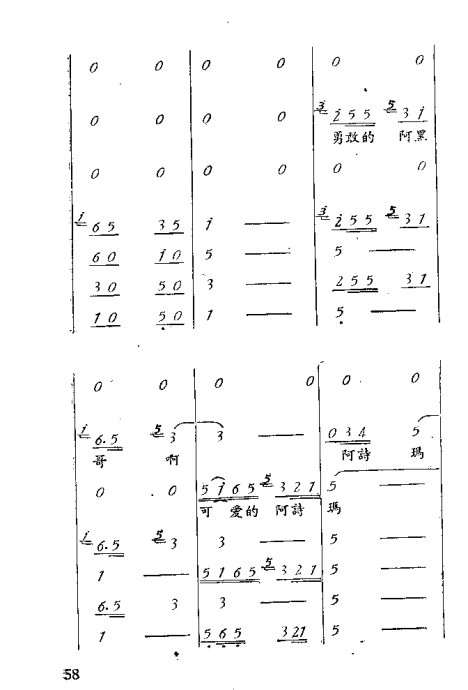 0 0 0 0 0 0
0 0 0 0 3 i 5 5 5 3 i
勇敢的 阿黑
0 0 0 0 0 0
i 6 5 3 5 i — 3 i 5 5 5 3 1
6 0 i 0 5 — 5 —
3 0 5 0 3 — 2 5 5 3 1
1 0 5 0 1 — 5 —
0 0 0 0 0 0
i 6. 5 5 3 3 — 0 3 4 5
哥 啊 阿詩 瑪
0 0 5 i 6 5 5 3 2 1 5 —
可 愛的 阿詩 瑪
i 6. 5 5 3 3 — 5 —
1 — 5 1 6 5 5 3 2 1 5 —
6. 5 3 3 — 5 —
1 — 5 6 5 3 21 5 —
58